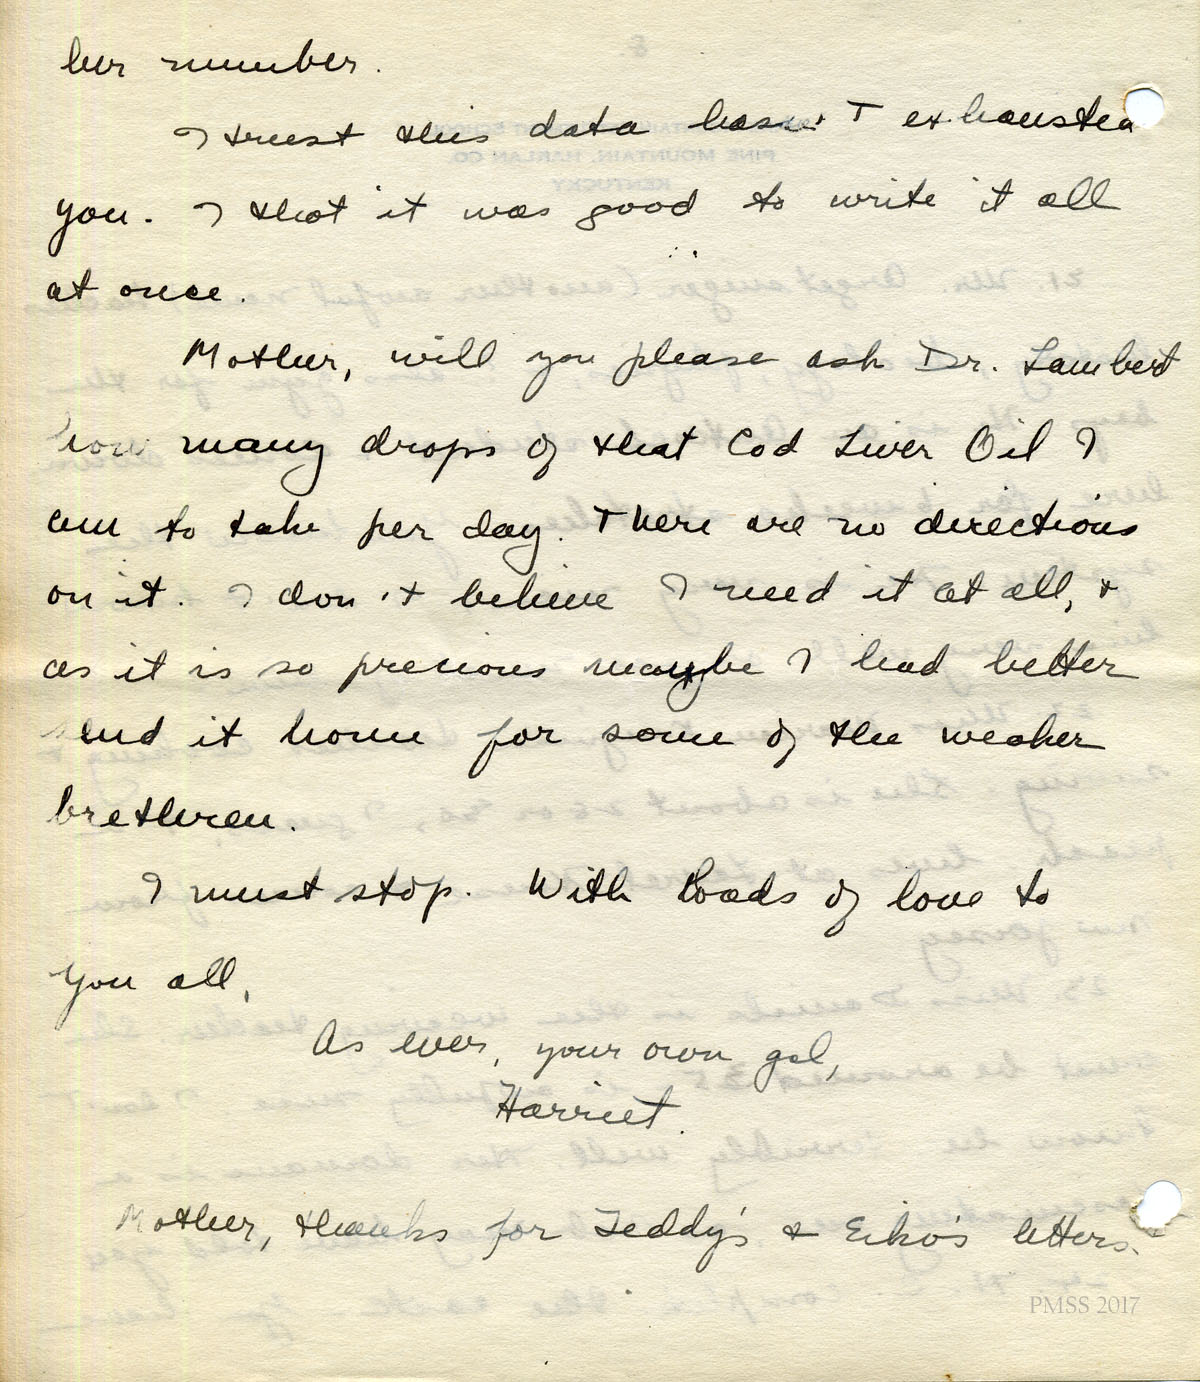 her number.
I trust this data hasn't exhausted
you. I thot it was good to write it all
at once.
Mother, will you please ask Dr. Lambert
how many drops of that Cod Liver Oil I
am to take per day. There are no directions
on it. I don't believe I need it at all, &
as it is so precious maybe I had better
send it home for some of the weaker
brethren.
I must stop. With loads of love to
you all,
As ever, your own gal,
Harriet.
Mother, thanks for Teddy's & Eiko's letters.
PMSS 2017